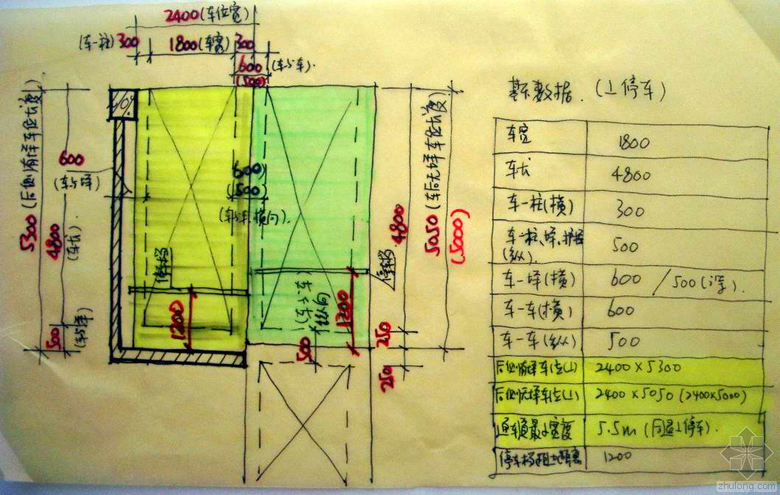 2400(车位宽)
(车-柱)300 1800(车宽) 300
600(车与车)
(500)
5300(后侧有墙车位长度)
600
(车与墙)
4800(车长)
500(车与墙)
600
(500)
(车与车,横向)
停车挡
1200
500(车与车)纵向
1200
停车挡
4800
250
250
5050(车后无墙车位长度)
(5000)
基本数据.(上停车)
车宽 1800
车长 4800
车-柱(横) 300
车-柱、墙、护栏(纵) 500
车-墙(横) 600/500(深).
车-车(横) 600
车-车(纵) 500
后侧有墙车位(上) 2400×5300
后侧无墙车位(上) 2400×5050(2400×5000)
通车道最小宽度 5.5m(同垂上停车).
停车挡距离 1200
zhulong.com